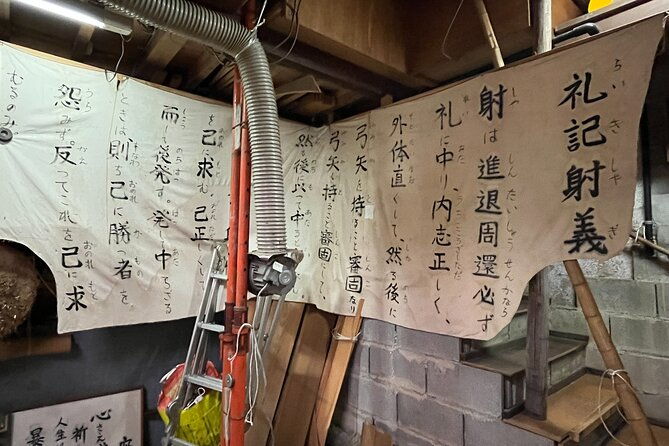 礼記射義
射は進退周還必ず
礼に中り、内志正しく、
外体直くして、然る後に
弓矢を持ること審固なり
弓矢を持ること審固にして、
然る後に以って中
己を求む 己正しくして
而して後発す。発して中らざる
ときは則ち己に勝つ者を
怨みず。反ってこれを己に求
むるのみ。
心
祈
人生
暴